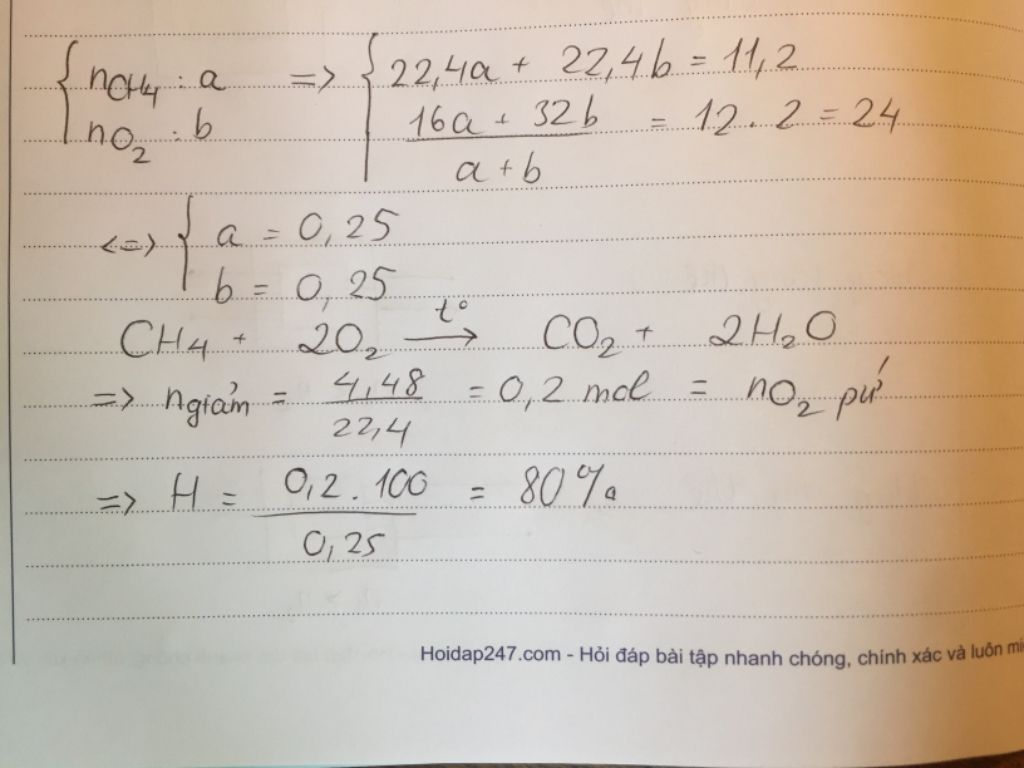 { nCH4 : a => { 22,4a + 22,4b = 11,2
nO2 : b (16a + 32b)/(a + b) = 12 . 2 = 24
<=> { a = 0,25
b = 0,25
CH4 + 2O2 —t°→ CO2 + 2H2O
=> ngiảm = 4,48/22,4 = 0,2 mol = nO2 pứ
=> H = (0,2 . 100)/0,25 = 80%
Hoidap247.com - Hỏi đáp bài tập nhanh chóng, chính xác và luôn